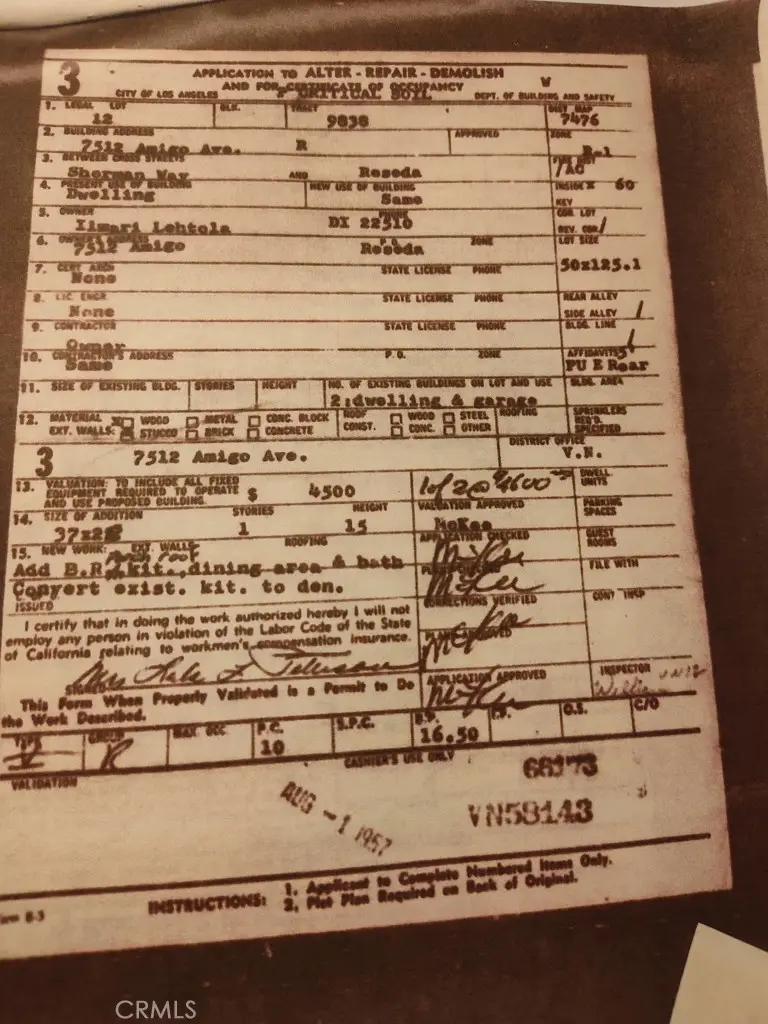 3 APPLICATION TO ALTER - REPAIR - DEMOLISH W
AND FOR CERTIFICATE OF OCCUPANCY
CITY OF LOS ANGELES CRITICAL SOIL DEPT. OF BUILDING AND SAFETY
1. LEGAL LOT BLK. TRACT DIST MAP
12 9838 7476
2. BUILDING ADDRESS APPROVED ZONE
7512 Amigo Ave. R R-1
3. BETWEEN CROSS STREETS FIRE DIST
Sherman Way AND Reseda
4. PRESENT USE OF BUILDING NEW USE OF BUILDING INSIDE X 60
Dwelling Same KEY
5. OWNER PHONE COR. LOT
Ilmari Lehtola DI 22510 REV. COR.
6. OWNER'S ADDRESS P.O. ZONE LOT SIZE
7512 Amigo Reseda
7. CERT ARCH STATE LICENSE PHONE 50x125.1
None
8. LIC. ENGR. STATE LICENSE PHONE REAR ALLEY
None SIDE ALLEY
9. CONTRACTOR STATE LICENSE PHONE BLDG. LINE
Owner
10. CONTRACTOR'S ADDRESS P.O. ZONE AFFIDAVITS
Same PU E Rear
11. SIZE OF EXISTING BLDG. STORIES HEIGHT NO. OF EXISTING BUILDINGS ON LOT AND USE BLDG. AREA
2:dwelling & garage
12. MATERIAL WOOD METAL CONC. BLOCK ROOF WOOD STEEL ROOFING SPRINKLERS
EXT. WALLS: STUCCO BRICK CONCRETE CONST. CONC. OTHER REQ'D. SPECIFIED
3 7512 Amigo Ave. DISTRICT OFFICE V.N.
13. VALUATION: TO INCLUDE ALL FIXED DWELL. UNITS
EQUIPMENT REQUIRED TO OPERATE $ 4500
AND USE PROPOSED BUILDING. VALUATION APPROVED PARKING SPACES
14. SIZE OF ADDITION STORIES HEIGHT McKee
1 15 APPLICATION CHECKED GUEST ROOMS
15. NEW WORK: EXT. WALLS ROOFING
Add B.R. kit., dining area & bath PLANS CHECKED FILE WITH
Convert exist. kit. to den.
ISSUED CORRECTIONS VERIFIED CONT INSP
I certify that in doing the work authorized hereby I will not
employ any person in violation of the Labor Code of the State
of California relating to workmen's compensation insurance. PLANS APPROVED
SIGNED APPLICATION APPROVED INSPECTOR
This Form When Properly Validated is a Permit to Do
the Work Described.
TYPE GROUP MAX. OCC. P.C. S.P.C. B.P. I.F. O.S. C/O
V R 10 16.50
VALIDATION CASHIER'S USE ONLY
AUG -1 1957
VN58143
Form B-3 INSTRUCTIONS: 1. Applicant to Complete Numbered Items Only.
2. Plot Plan Required on Back of Original.
CRMLS